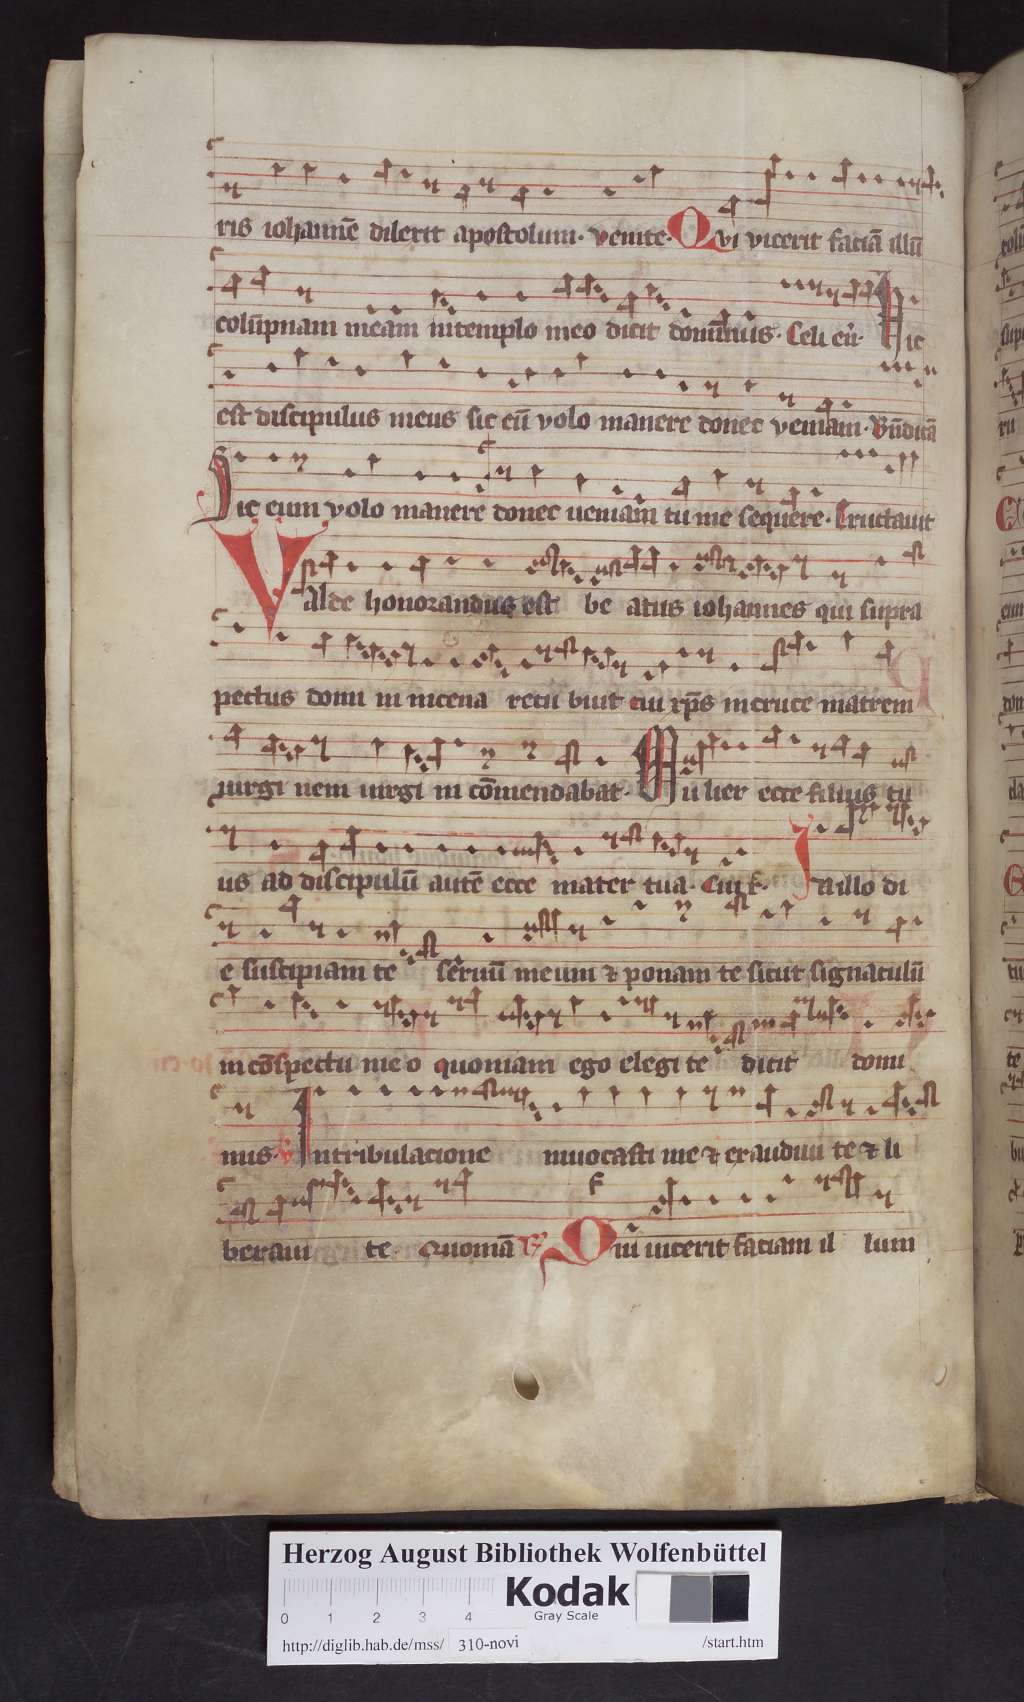 ris iohannē dilexit apostolum. venite. Qvi vicerit faciā illū
colūpnam meam in templo meo dicit dominus. Celi en̄. Hic
est discipulus meus sic eū volo manere donec veniam. Bn̄dicā
Sic eum volo manere donec ueniam tu me sequere. Eructauit
Valde honorandus est be atus iohannes qui supra
pectus domi ni in cena recu buit cui xp̄s in cruce matrem
uirgi nem uirgi ni cōmendabat. Mu lier ecce filius tu
us ad discipulū autē ecce mater tua. Cui x̄. In illo di
e suscipiam te seruū meum ⁊ ponam te sicut signaculū
in cōspectu me o quoniam ego elegi te dicit domi
nus. v Intribulacione inuocasti me ⁊ exaudiui te ⁊ li
beraui te. Quoniā R Qui uicerit faciam il lum
Herzog August Bibliothek Wolfenbüttel
Kodak
Gray Scale
0 1 2 3 4
http://diglib.hab.de/mss/ 310-novi /start.htm